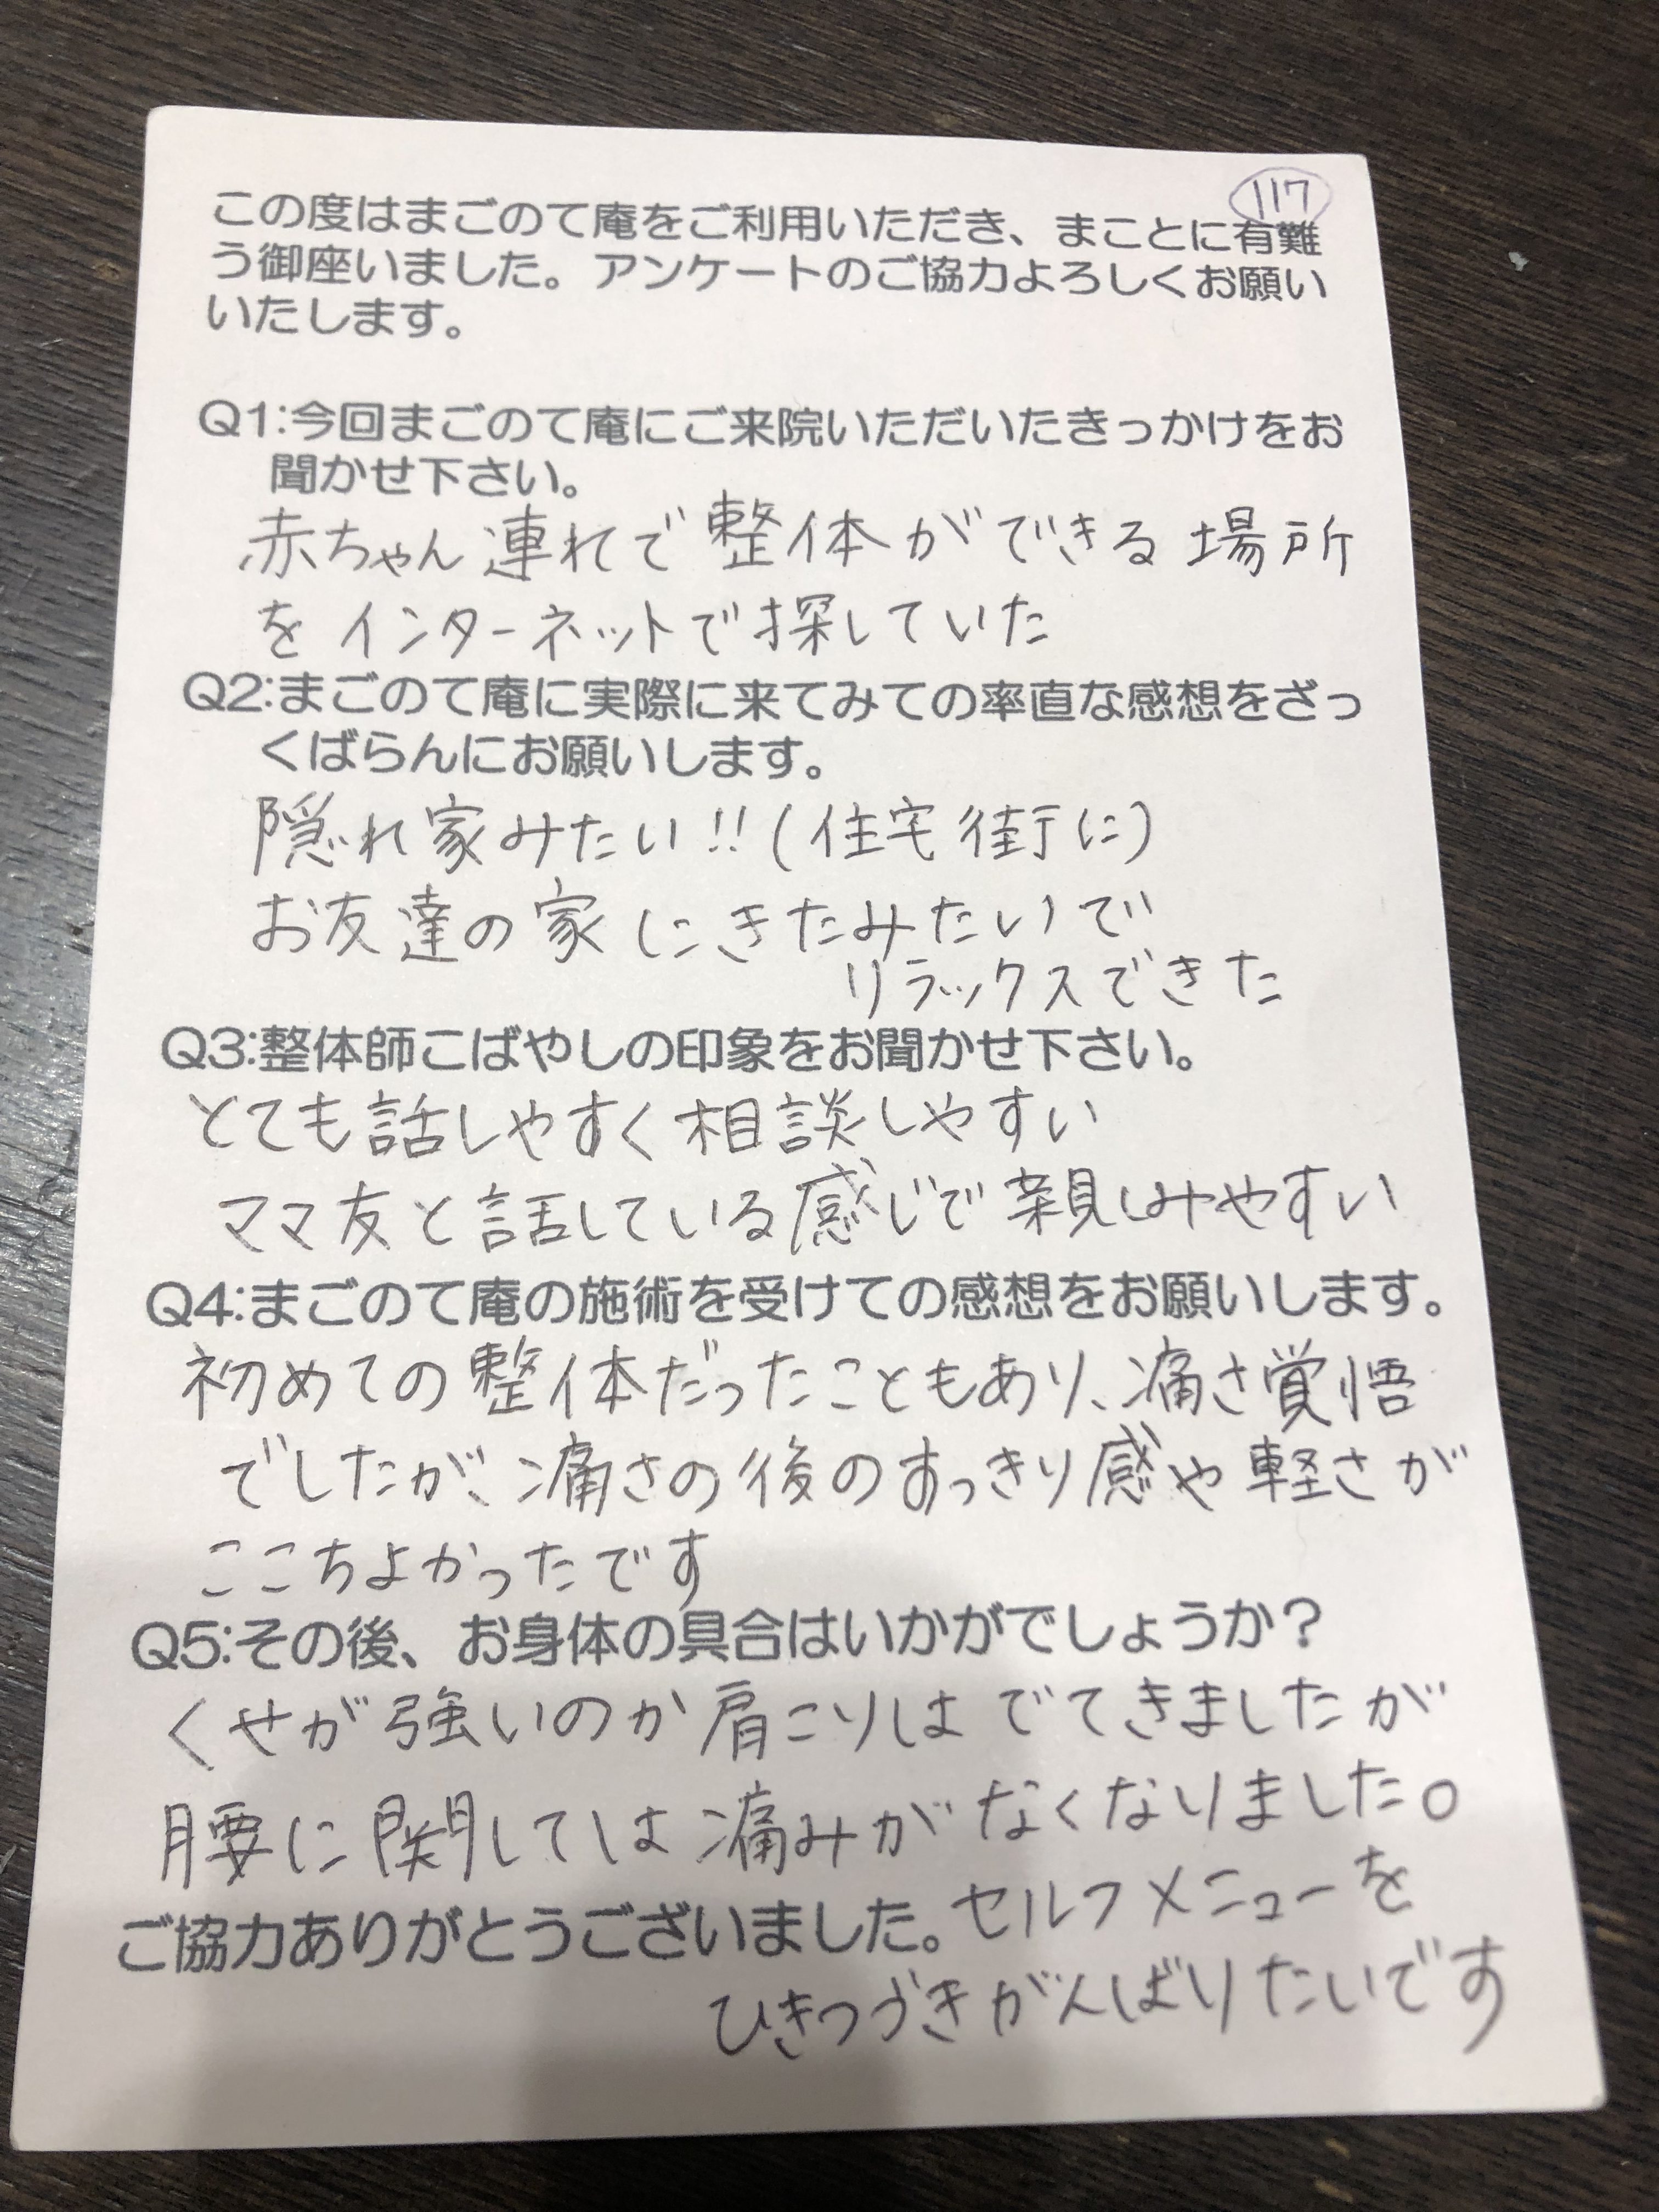 117
この度はまごのて庵をご利用いただき、まことに有難
う御座いました。アンケートのご協力よろしくお願い
いたします。
Q1:今回まごのて庵にご来院いただいたきっかけをお
聞かせ下さい。
赤ちゃん連れで整体ができる場所
をインターネットで探していた
Q2:まごのて庵に実際に来てみての率直な感想をざっ
くばらんにお願いします。
隠れ家みたい!!(住宅街に)
お友達の家にきたみたいで
リラックスできた
Q3:整体師こばやしの印象をお聞かせ下さい。
とても話しやすく相談しやすい
ママ友と話している感じで親しみやすい
Q4:まごのて庵の施術を受けての感想をお願いします。
初めての整体だったこともあり、痛さ覚悟
でしたが、痛さの後のすっきり感や軽さが
ここちよかったです
Q5:その後、お身体の具合はいかがでしょうか？
くせが強いのか肩こりはでてきましたが
腰に関しては痛みがなくなりました。
ご協力ありがとうございました。セルフメニューを
ひきつづきがんばりたいです